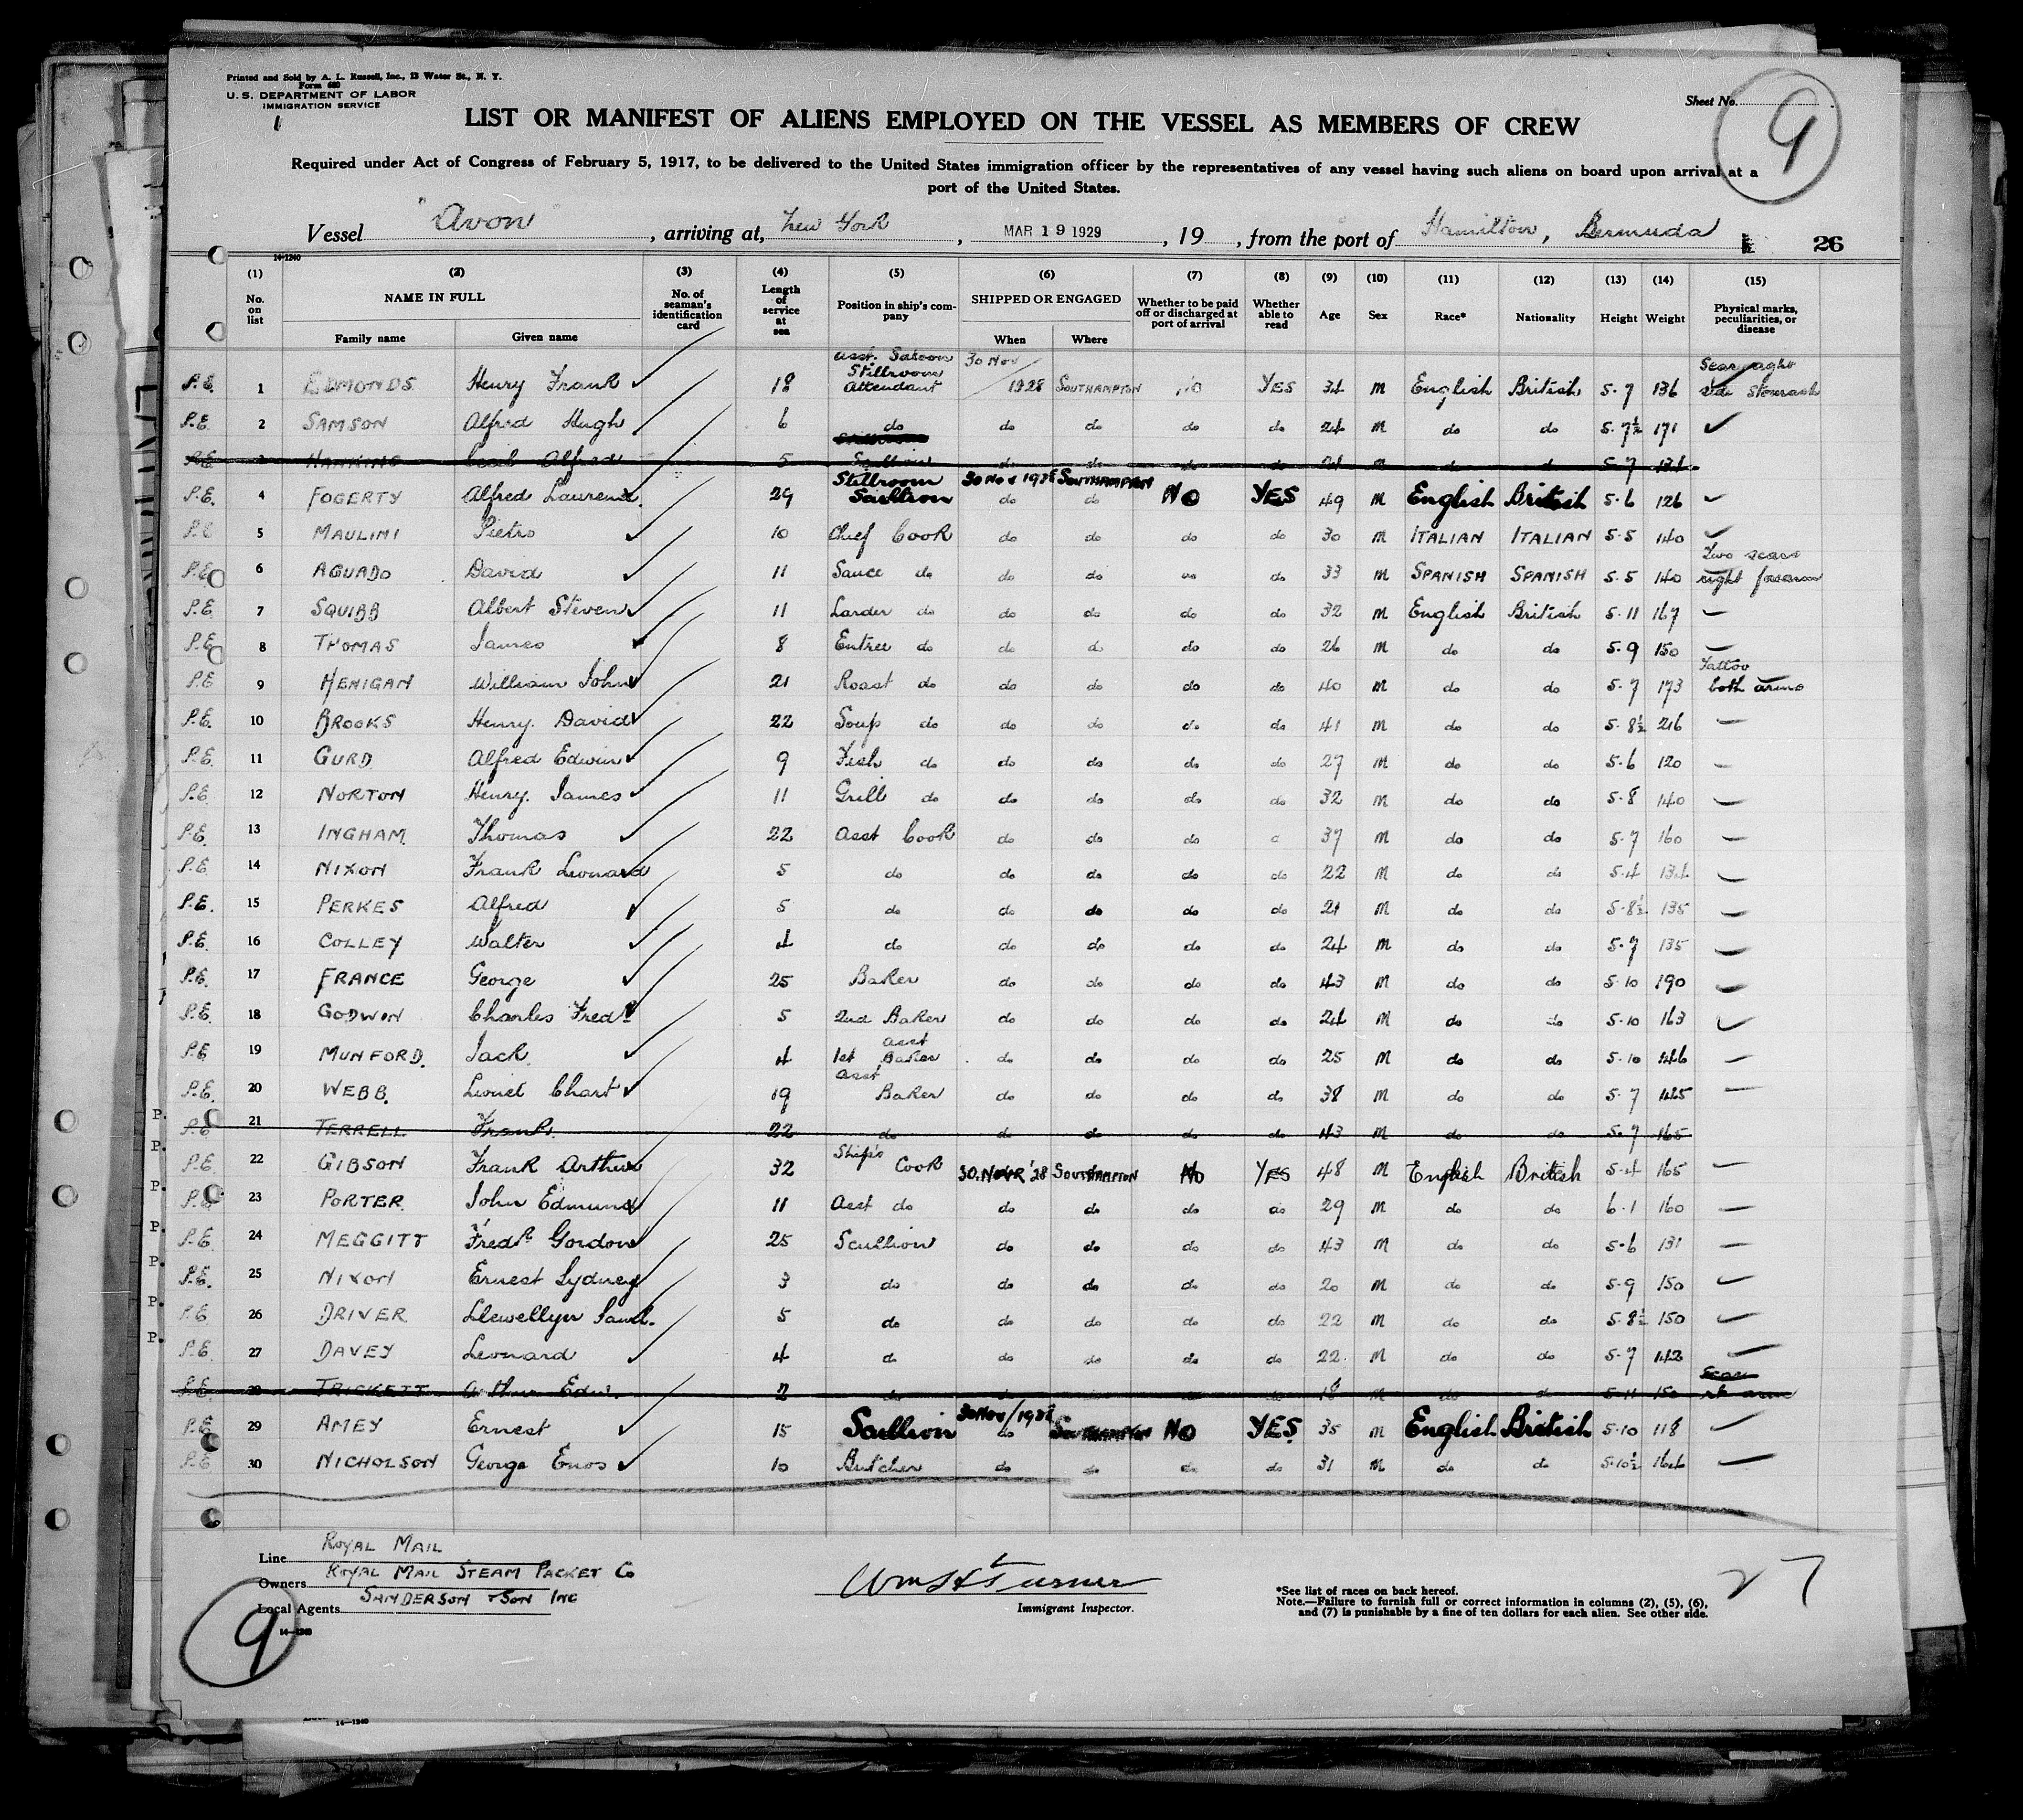 Printed and Sold by A. L. Russell, Inc., 13 Water St., N. Y.
Form 680
U. S. DEPARTMENT OF LABOR
IMMIGRATION SERVICE
Sheet No.
9
LIST OR MANIFEST OF ALIENS EMPLOYED ON THE VESSEL AS MEMBERS OF CREW
Required under Act of Congress of February 5, 1917, to be delivered to the United States immigration officer by the representatives of any vessel having such aliens on board upon arrival at a
port of the United States.
Vessel "Avon", arriving at, New York, MAR 19 1929, 19 , from the port of Hamilton, Bermuda 26
14-1240
(1) (2) (3) (4) (5) (6) (7) (8) (9) (10) (11) (12) (13) (14) (15)
No. on list NAME IN FULL Family name Given name No. of seaman's identification card Length of service at sea Position in ship's company SHIPPED OR ENGAGED When Where Whether to be paid off or discharged at port of arrival Whether able to read Age Sex Race* Nationality Height Weight Physical marks, peculiarities, or disease
P.E. 1 EDMONDS Henry Frank 18 Asst. Saloon Stillroom Attendant 30 Nov 1928 SOUTHAMPTON No YES 34 M English British 5.7 136 Scar right side stomach
P.E. 2 SAMSON Alfred Hugh 6 do do do do do 24 M do do 5.7½ 171
P.E. 3 HAWKINS Cecil Alfred 5 Scullion do do do do 21 M do do 5.7 131
P.E. 4 FOGERTY Alfred Laurence 29 Stillroom Scullion 30 Nov 1928 SOUTHAMPTON do do No YES 49 M English British 5.6 126
P.E. 5 MAULINI Pietro 10 Chief Cook do do do do 30 M ITALIAN ITALIAN 5.5 140
P.E. 6 AGUADO David 11 Sauce do do do do do 33 M SPANISH SPANISH 5.5 140 Two scars right forearm
P.E. 7 SQUIBB Albert Steven 11 Larder do do do do do 32 M English British 5.11 167
P.E. 8 THOMAS James 8 Entree do do do do do 26 M do do 5.9 150
P.E. 9 HENIGAN William John 21 Roast do do do do do 40 M do do 5.7 173 Tattoo both arms
P.E. 10 BROOKS Henry. David 22 Soup do do do do do 41 M do do 5.8½ 216
P.E. 11 GURD Alfred Edwin 9 Fish do do do do do 27 M do do 5.6 120
P.E. 12 NORTON Henry. James 11 Grill do do do do do 32 M do do 5.8 140
P.E. 13 INGHAM. Thomas 22 Asst Cook do do do 37 M do do 5.7 160
P.E. 14 NIXON Frank Leonard 5 do do do do do 22 M do do 5.4 134
P.E. 15 PERKES Alfred 5 do do do do do 21 M do do 5.8½ 135
P.E. 16 COLLEY Walter 4 do do do do do 24 M do do 5.7 135
P.E. 17 FRANCE George 25 Baker do do do do 43 M do do 5.10 190
P.E. 18 GODWIN Charles Fredk 5 2nd Baker do do do do 24 M do do 5.10 163
P.E. 19 MUNFORD. Jack 4 1st Asst Baker do do do do 25 M do do 5.10 146
P.E. 20 WEBB. Lionel Chart 19 Asst Baker do do do do 38 M do do 5.7 145
P.E. 21 TERRELL Frank. 22 do do do do do 43 M do do 5.7 165
P.E. 22 GIBSON Frank Arthur 32 Ship's Cook 30.NOVR '28 SOUTHAMPTON No YES 48 M English British 5.4 165
P.E. 23 PORTER. John Edmund 11 Asst do do do do do 29 M do do 6.1 160
P.E. 24 MEGGITT Fredk Gordon 25 Scullion do do do do 43 M do do 5.6 131
P.E. 25 NIXON Ernest Sydney 3 do do do do do 20 M do do 5.9 150
P.E. 26 DRIVER Llewellyn 5 do do do do do 22 M do do 5.8½ 150
P.E. 27 DAVEY Leonard 4 do do do do do 22. M do do 5.7 142
P.E. 28 TRICKETT Arthur Edw. 2 do do do do do 18 M do do 5.11 150 Scar rt arm
P.E. 29 AMEY Ernest 15 Scullion 30 Nov/1928 do SOUTHAMPTON No YES. 35 M English British 5.10 118
P.E. 30 NICHOLSON George Enos 10 Butcher do do do do 31 M do do 5.10½ 164
Line ROYAL MAIL
Owners ROYAL MAIL STEAM PACKET Co
Local Agents SANDERSON & SON INC
14-1240
9
Wm H Turner
Immigrant Inspector.
*See list of races on back hereof.
Note.—Failure to furnish full or correct information in columns (2), (5), (6),
and (7) is punishable by a fine of ten dollars for each alien. See other side.
27
14-1240